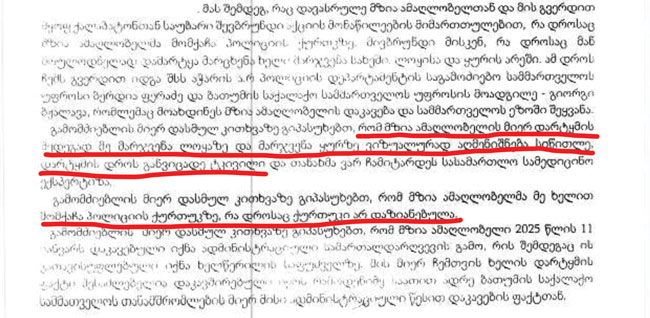 . მას შემდეგ, რაც დავასრულე მზია ამაღლობელთან და მის გვერდით
მყოფ ქალბატონთან საუბარი შევბრუნდი აქციის მონაწილეების მიმართულებით, რა დროსაც
მზია ამაღლობელმა მომქაჩა პოლიციის ქურთუკზე, მივბრუნდი მისკენ, რა დროსაც მან
მოულოდნელად დამარტყა მარცხენა ხელი მარჯვენა სახეში, ლოყისა და ყურის არეში. ამ დროს
ჩემს გვერდით იდგა შსს აჭარის ა.რ პოლიციის დეპარტამენტის საგამოძიებო სამმართველოს
უფროსი ბერდია ფერაძე და ბათუმის საქალაქო სამმართველოს უფროსის მოადგილე - გიორგი
რომლემაც მოახდინეს მზია ამაღლობელის დაკავება და სამმართველოს ეზოში შეყვანა.
გამომძიებლის მიერ დასმულ კითხვაზე გიპასუხებთ, რომ მზია ამაღლობელის მიერ დარტყმის
შედეგად მე მარჯვენა ლოყაზე და მარჯვენა ყურზე ვიზუალურად აღმენიშნება სიწითლე,
დარტყმის დროს განვიცადე ტკივილი და თანახმა ვარ ჩამიტარდეს სასამართლო სამედიცინო
ექსპერტიზა.
გამომძიებლის მიერ დასმულ კითხვაზე გიპასუხებთ, რომ მზია ამაღლობელმა მე ხელით
მომქაჩა პოლიციის ქურთუკზე, რა დროსაც ქურთუკი არ დაზიანებულა.
გამომძიებლის მიერ დასმულ კითხვაზე გიპასუხებთ, რომ მზია ამაღლობელი 2025 წლის 11
იანვარს დაკავებული იქნა ადმინისტრაციული სამართალდარღვევის გამო, რის შემდეგაც ის
გათავისუფლებული იქნა ხელწერილის საფუძველზე. მის მიერ ჩემთვის ხელის დარტყმის
ფაქტი შესაძლებელია დაკავშირებული იყოს რამოდენიმე საათით ადრე ბათუმის საქალაქო
სამმართველოს თანამშრომლების მიერ მისი ადმინისტრაციული წესით დაკავების ფაქტთან.